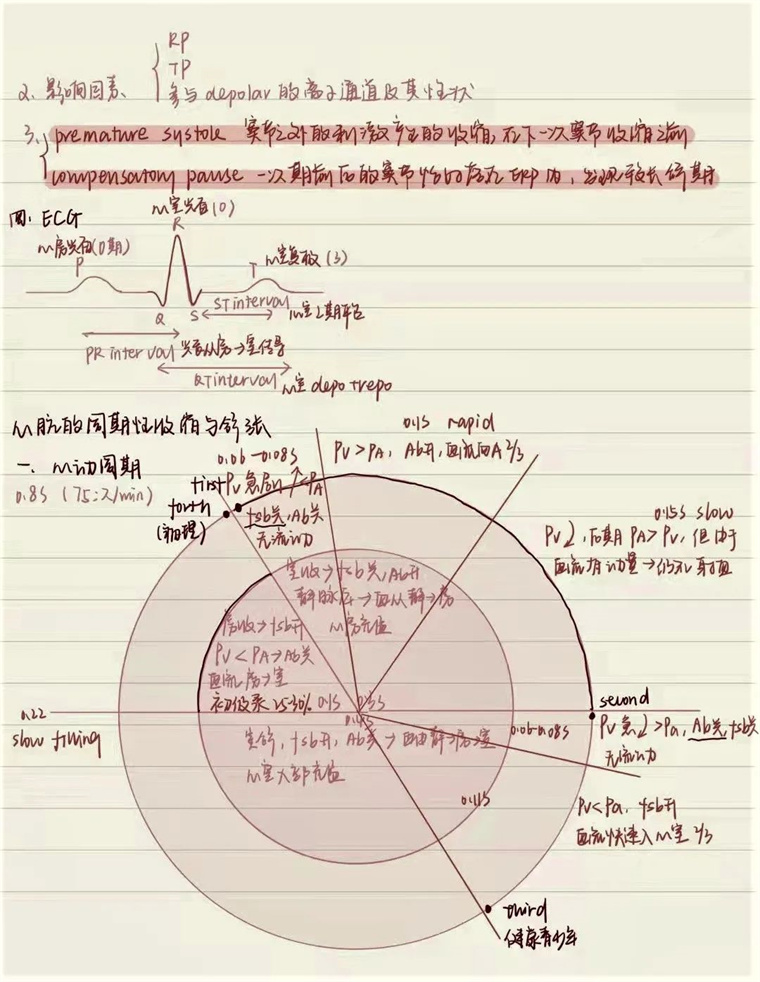 RP
TP
2. 影响因素 参与 depolar 的离子通道及其性状
3. premature systole 窦节之外的刺激产生的收缩, 在下一次窦节收缩之前
compensatory pause 一次期前后的窦节 ERP 内, 出现较长舒期
四. ECG
心室去极(0)
R
心房去极(0期)
P
T 心室复极 (3)
Q S ST interval 心室2期平台
PR interval 从房→室传导
QT interval 心室 depo + repo
心脏的周期性收缩与舒张
一. 心动周期
0.8s (75次/min)
0.1s rapid
Pv > PA, Ab开, 血流向A 2/3
0.06-0.08s
first Pv 急 ↑ < PA
forth
(病理)
tsb关, Ab关
无流动
0.15s slow
Pv↓, 后期 PA > Pv, 但由于
血流有动量→仍可射血
室收→tsb关, Ab开
心房充盈
房收→tsb开
Pv < PA→Ab关
血流房→室
初级泵 25-30% 0.1s
0.22
slow filling
second
Pv 急↓ > Pa, Ab关, tsb关
无流动
0.06-0.08s
室舒, tsb开, Ab关→血由静→房→室
心室大部充盈
0.11s
Pv < Pa, tsb开
血流快速入心室 2/3
third
健康青少年